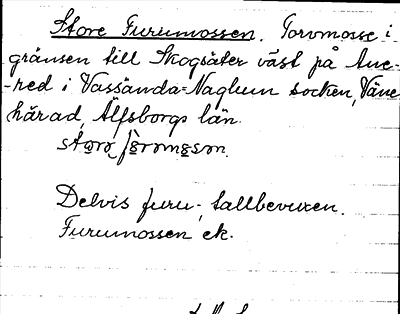 Store Furumossen. Torvmosse i
gränsen till Skogsäter väst på Ane-
-red i Vassända-Naglum socken, Väne
härad, Älfsborgs län.
Delvis furu-, tallbevuxen.
Furumossen ek.